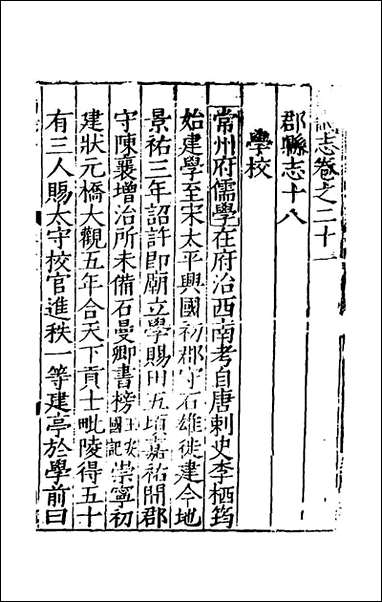 志卷之二十一
郡縣志十八
學校
常州府儒學在府治西南考自唐刺史李栖筠
始建學至宋太平興國初郡守石雄徙建今地
景祐三年詔許即廟立學賜田五頃嘉祐間郡
守陳襄增治所未備石曼卿書榜王安國記崇寧初
建狀元橋大觀五年合天下貢士毗陵得五十
有三人賜太守校官進秩一等建亭於學前曰